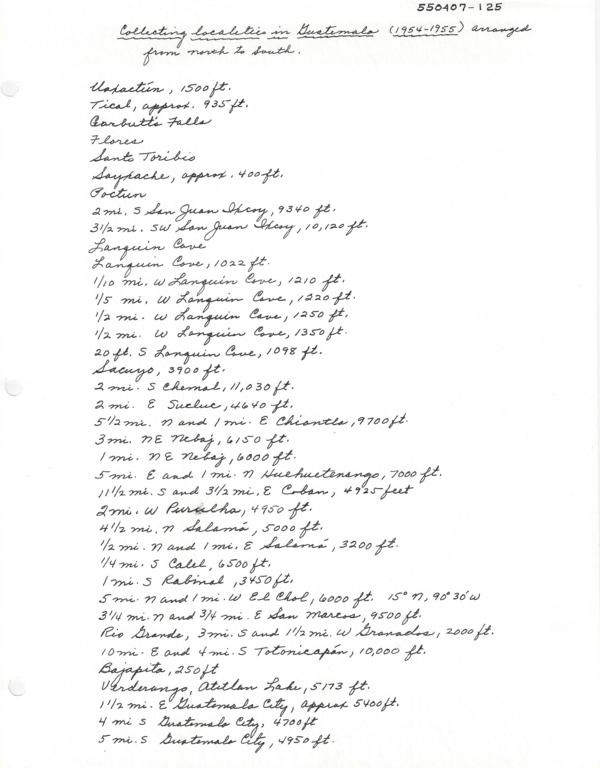 550407-125
Collecting localities in Guatemala (1954-1955) arranged
from north to south.
Uaxactún, 1500 ft.
Tical, approx. 935 ft.
Garbutt's Falls
Flores
Santo Toribio
Sayxache, approx. 400 ft.
Poctun
2 mi. S San Juan Ixcoy, 9340 ft.
3 1/2 mi. SW San Juan Ixcoy, 10,120 ft.
Lanquin Cave
Lanquin Cave, 1022 ft.
1/10 mi. W Lanquin Cave, 1210 ft.
1/5 mi. W Lanquin Cave, 1220 ft.
1/2 mi. W Lanquin Cave, 1250 ft.
1/2 mi. W Lanquin Cave, 1350 ft.
20 ft. S Lanquin Cave, 1098 ft.
Sacuyo, 3900 ft.
2 mi. S Chemal, 11,030 ft.
2 mi. E Sucluc, 4640 ft.
5 1/2 mi. N and 1 mi. E Chiantla, 9700 ft.
3 mi. NE Nebaj, 6150 ft.
1 mi. NE Nebaj, 6000 ft.
5 mi. E and 1 mi. N Huehuetenango, 7000 ft.
11 1/2 mi. S and 3 1/2 mi. E Coban, 4925 feet
2 mi. W Purulha, 4950 ft.
4 1/2 mi. N Salamá, 5000 ft.
1/2 mi. N and 1 mi. E Salamá, 3200 ft.
1/4 mi. S Calel, 6500 ft.
1 mi. S Rabinal, 3450 ft.
5 mi. N and 1 mi. W El Chol, 6000 ft. 15° N, 90° 30' W
3 1/4 mi. N and 3/4 mi. E San Marcos, 9500 ft.
Rio Grande, 3 mi. S and 1 1/2 mi. W Granados, 2000 ft.
10 mi. E and 4 mi. S Totonicapán, 10,000 ft.
Bajapita, 250 ft
Verderango, Atitlan Lake, 5173 ft.
1 1/2 mi. E Guatemala City, approx 5400 ft.
4 mi S Guatemala City, 4700 ft
5 mi. S Guatemala City, 4950 ft.